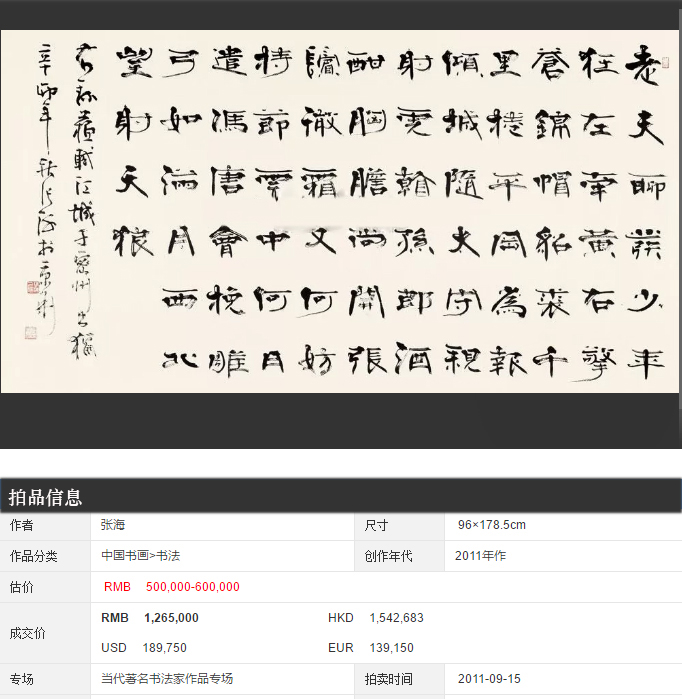 老夫聊發少年
狂左牽黃右擎
蒼錦帽貂裘千
里捲平岡為報
傾城隨太守親
射虎看孫郎酒
酣胸膽尚開張
鬢微霜又何妨
持節雲中何日
遣馮唐會挽雕
弓如滿月西北
望射天狼
右錄蘇軾江城子密州出獵
辛卯年秋張海於
拍品信息
作者 张海 尺寸 96×178.5cm
作品分类 中国书画>书法 创作年代 2011年作
估价 RMB 500,000-600,000
成交价 RMB 1,265,000 HKD 1,542,683
USD 189,750 EUR 139,150
专场 当代著名书法家作品专场 拍卖时间 2011-09-15